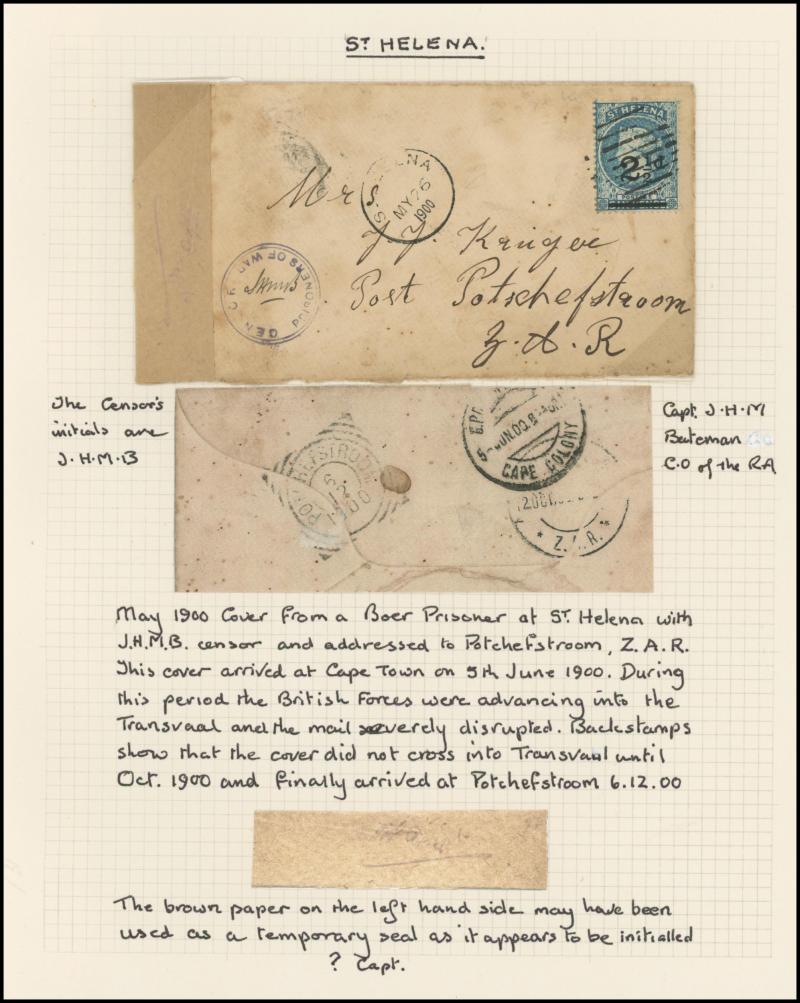 ST HELENA.
ST HELENA
2½d
POSTAGE
ENA
MY 26
1900
S
Mrs.
J. J. Kruger
Post Potschefstroom
Z. A. R
PRISONERS OF WAR
CEN
JHMB
The Censor's
initials are
J.H.M.B
Capt. J.H.M
Bateman
C.O of the RA
POTCHEFSTROOM
6
12
1900
CAPE COLONY
Z.A.R.
May 1900 Cover from a Boer Prisoner at ST. Helena with
J.H.M.B. censor and addressed to Potchefstroom, Z.A.R.
This cover arrived at Cape Town on 5th June 1900. During
this period the British Forces were advancing into the
Transvaal and the mail severely disrupted. Backstamps
show that the cover did not cross into Transvaal until
Oct. 1900 and finally arrived at Potchefstroom 6.12.00
The brown paper on the left hand side may have been
used as a temporary seal as it appears to be initialled
? Capt.